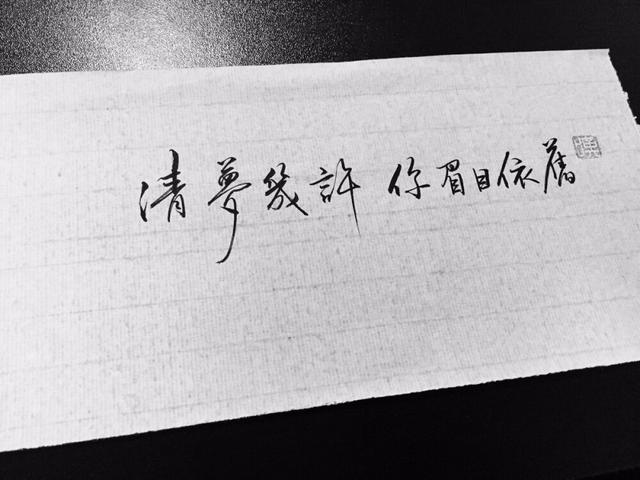 清夢幾許 你眉目依舊